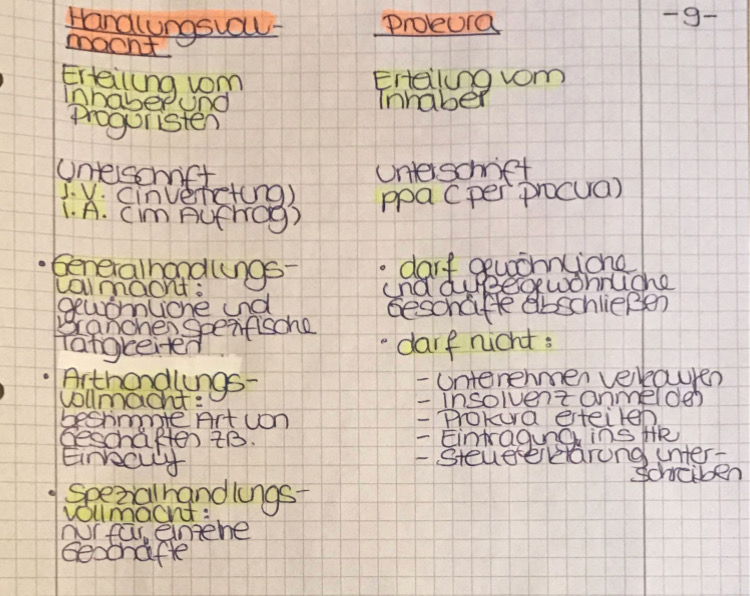 Handlungsvoll-
macht
Erteilung vom
Inhaber und
Proguristen
Unterschrift
i.V. (in Vertretung)
i.A. (im Auftrag)
• Generalhandlungs-
vollmacht:
gewöhnliche und
Branchenspezifische
Tätigkeiten
• Arthandlungs-
vollmacht:
bestimmte Art von
Geschäften z.B.
Einkauf
• Spezialhandlungs-
vollmacht:
nur für einzelne
Geschäfte
Prokura
-9-
Erteilung vom
Inhaber
Unterschrift
ppa (per procura)
• darf gewöhnliche
und außegewöhnliche
Geschäfte abschließen
• darf nicht:
- Unternehmen verkaufen
- Insolvenz anmelden
- Prokura erteilen
- Eintragung ins HR
- Steuererklärung unter-
schreiben